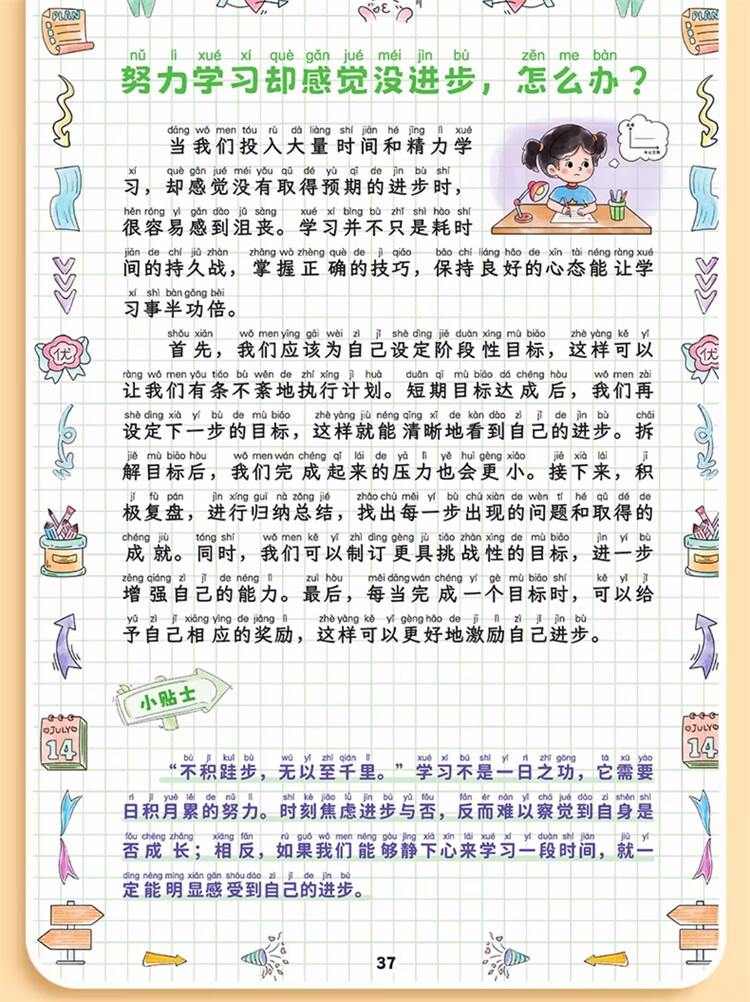 PLAN
PLAN
nǔ lì xué xí què gǎn jué méi jìn bù zěn me bàn
努力学习却感觉没进步，怎么办？
dāng wǒ men tóu rù dà liàng shí jiān hé jīng lì xué
当我们投入大量时间和精力学
xí què gǎn jué méi yǒu qǔ dé yù qī de jìn bù shí
习，却感觉没有取得预期的进步时，
hěn róng yì gǎn dào jǔ sàng xué xí bìng bù zhǐ shì hào shí
很容易感到沮丧。学习并不只是耗时
jiān de chí jiǔ zhàn zhǎng wò zhèng què de jì qiǎo bǎo chí liáng hǎo de xīn tài néng ràng xué
间的持久战，掌握正确的技巧，保持良好的心态能让学
xí shì bàn gōng bèi
习事半功倍。
shǒu xiān wǒ men yīng gāi wèi zì jǐ shè dìng jiē duàn xìng mù biāo zhè yàng kě yǐ
首先，我们应该为自己设定阶段性目标，这样可以
ràng wǒ men yǒu tiáo bù wěn de zhí xíng jì huà duǎn qī mù biāo dá chéng hòu wǒ men zài
让我们有条不紊地执行计划。短期目标达成后，我们再
shè dìng xià yí bù de mù biāo zhè yàng jiù néng qīng xī de kàn dào zì jǐ de jìn bù chāi
设定下一步的目标，这样就能清晰地看到自己的进步。拆
jiě mù biāo hòu wǒ men wán chéng qǐ lái de yā lì yě huì gèng xiǎo jiē xià lái jī
解目标后，我们完成起来的压力也会更小。接下来，积
jí fù pán jìn xíng guī nà zǒng jié zhǎo chū měi yí bù chū xiàn de wèn tí hé qǔ dé de
极复盘，进行归纳总结，找出每一步出现的问题和取得的
chéng jiù tóng shí wǒ men kě yǐ zhì dìng gèng jù tiǎo zhàn xìng de mù biāo jìn yí bù
成就。同时，我们可以制订更具挑战性的目标，进一步
zēng qiáng zì jǐ de néng lì zuì hòu měi dāng wán chéng yí gè mù biāo shí kě yǐ jǐ
增强自己的能力。最后，每当完成一个目标时，可以给
yǔ zì jǐ xiāng yìng de jiǎng lì zhè yàng kě yǐ gèng hǎo de jī lì zì jǐ jìn bù
予自己相应的奖励，这样可以更好地激励自己进步。
小贴士
bù jī kuǐ bù wú yǐ zhì qiān lǐ xué xí bú shì yí rì zhī gōng tā xū yào
“不积跬步，无以至千里。”学习不是一日之功，它需要
rì jī yuè lěi de nǔ lì shí kè jiāo lǜ jìn bù yǔ fǒu fǎn ér nán yǐ chá jué dào zì shēn shì
日积月累的努力。时刻焦虑进步与否，反而难以察觉到自身是
fǒu chéng zhǎng xiāng fǎn rú guǒ wǒ men néng gòu jìng xià xīn lái xué xí yí duàn shí jiān jiù yí
否成长；相反，如果我们能够静下心来学习一段时间，就一
dìng néng míng xiǎn gǎn shòu dào zì jǐ de jìn bù
定能明显感受到自己的进步。
优
优
JULY
14
JULY
14
37